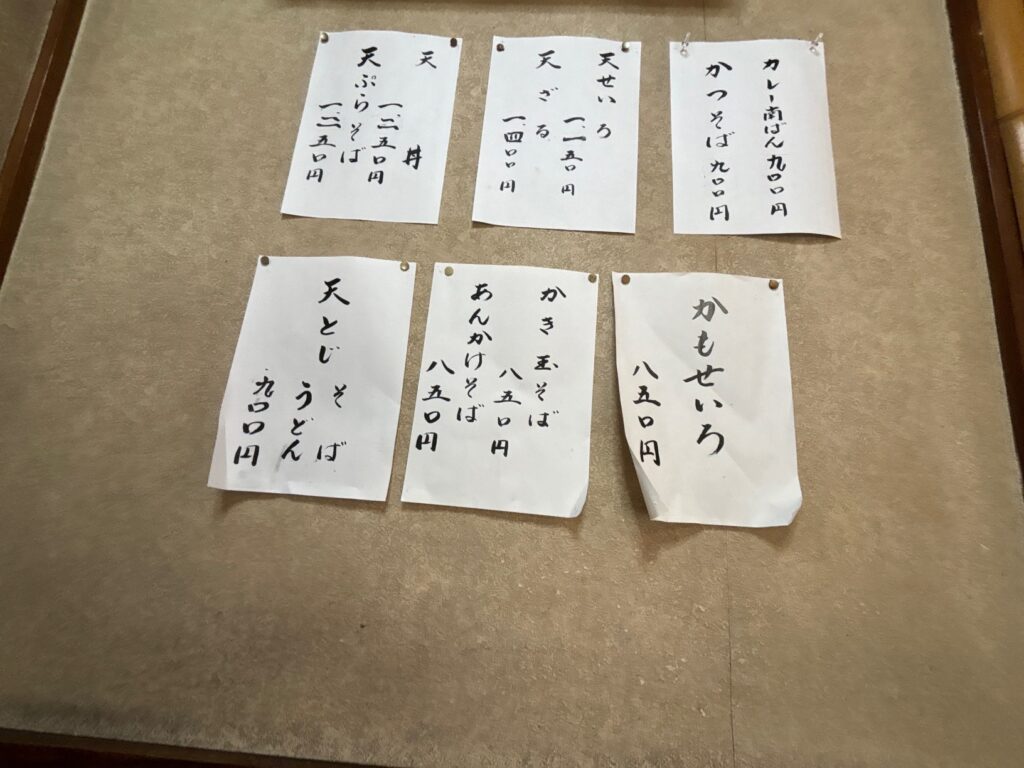 カレー南ばん九〇〇円
かつそば九〇〇円
天せいろ
一、一五〇円
天ざる
一、四〇〇円
天丼
一、二五〇円
天ぷらそば
一、二五〇円
かもせいろ
八五〇円
かき玉そば
八五〇円
あんかけそば
八五〇円
天とじそば
うどん
九〇〇円